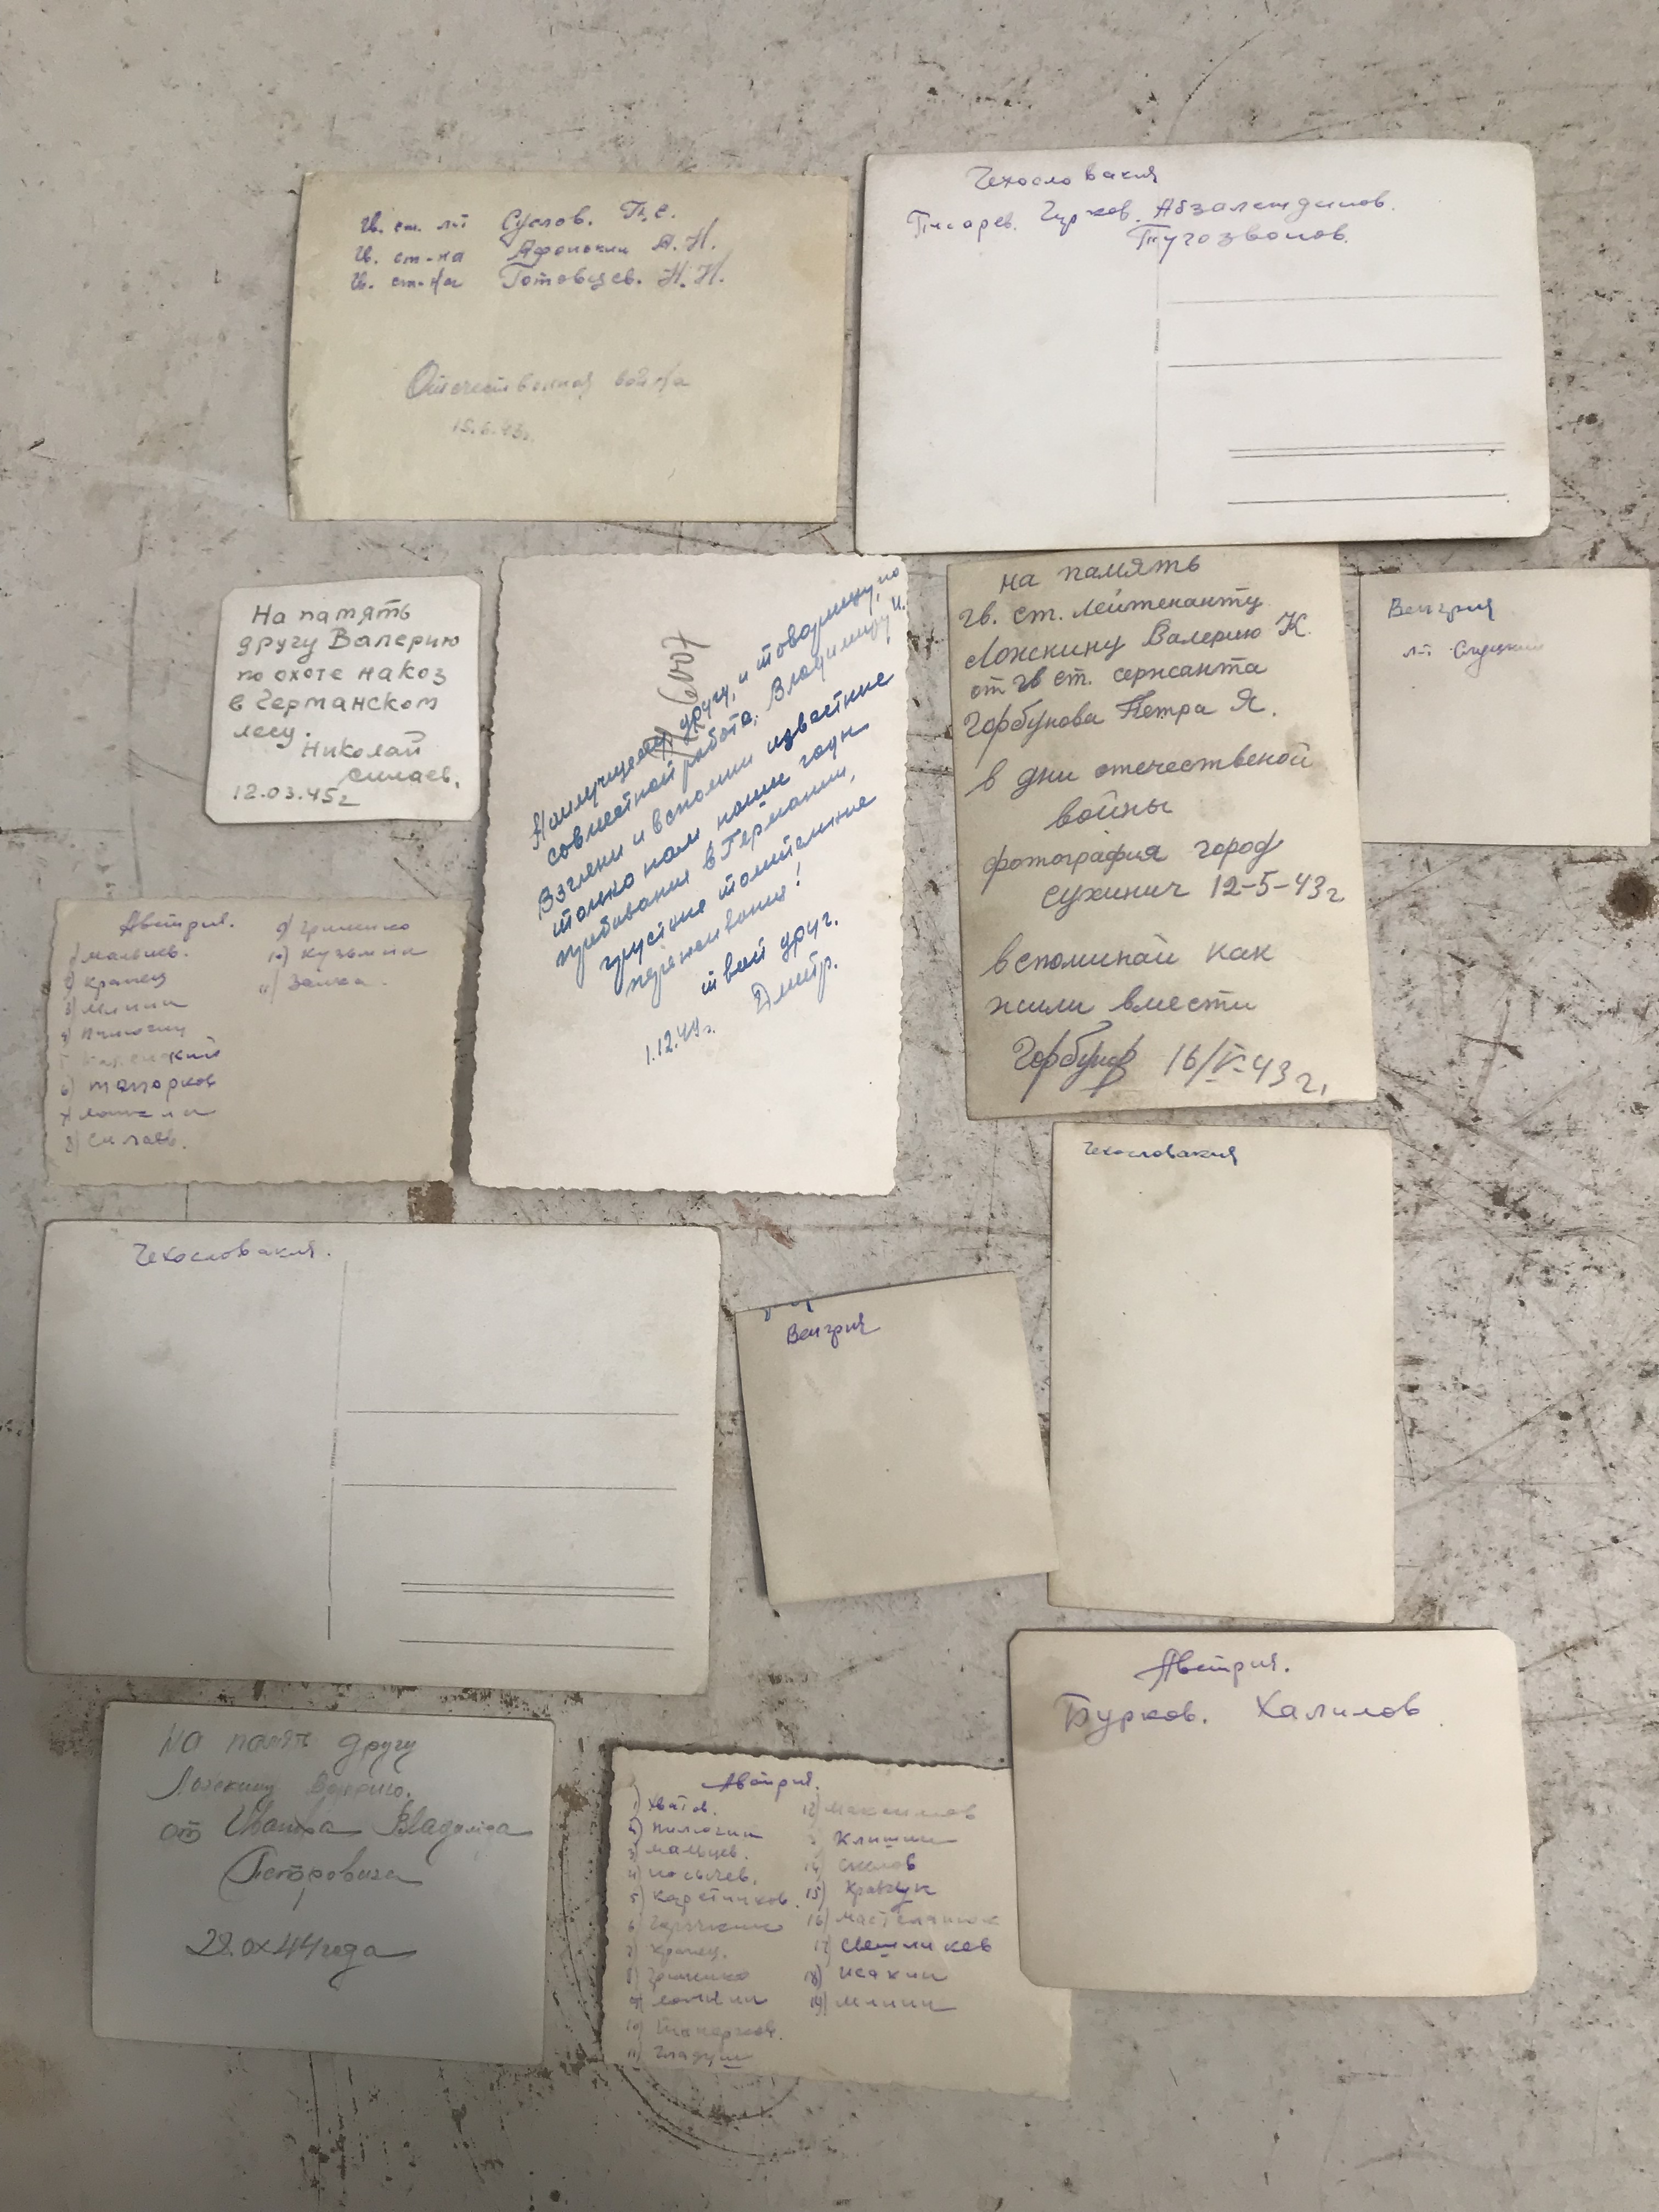 Гв. ст. л-т Суслов. П.С.
Гв. ст-на Афонькин А.Н.
Гв. ст-на Готовцев. Н.Н.
Отечественная война
15.6.43г.
Чехословакия
Писарев. Гурков. Абзалетдинов.
Тугозвонов.
На память
другу Валерию
по охоте на коз
в Германском
лесу.
Николай
Силаев.
12.03.45г
6007
Наилучшему другу, и товарищу, по
совместной работе, Владимиру И.
Взглени и вспомни известные
только нам наши годы
пребывания в Германии,
грустные томительные
переживания!
твой друг.
Дмитр.
1.12.49г.
на память
гв. ст. лейтенанту
Ложкину Валерию К.
от гв ст. сержанта
Горбунова Петра Я.
в дни отечественой
войны
фотография город
сухинич 12-5-43г
вспоминай как
жили вмести
Горбунов 16/V-43г.
Венгрия
л-т Слуцкий
Австрия.
1) Мальцев.
2) Кравец
3) Минин
4) Пилюгин
6) Топорков
8) Силаев.
9) Гриненко
10) Кузьмин
11) Заика.
Чехословакия
Чехословакия.
Венгрия
Австрия.
Бурков. Халилов
На память другу
Ложкину Валерию.
от Владимира
Петровича
29.0х44года
Австрия.
1) Хватов.
2) Пилюгин
3) Мальцев.
4) Носычев.
5) Каретников
6)
7) Кравец.
8) Гриненко
9) Ложкин
10) Топорков.
11) Гладуш
12) Максимов
Клишин
14)
15) Кравчук
16)
17) Свешников
18) Исакин
19) Минин